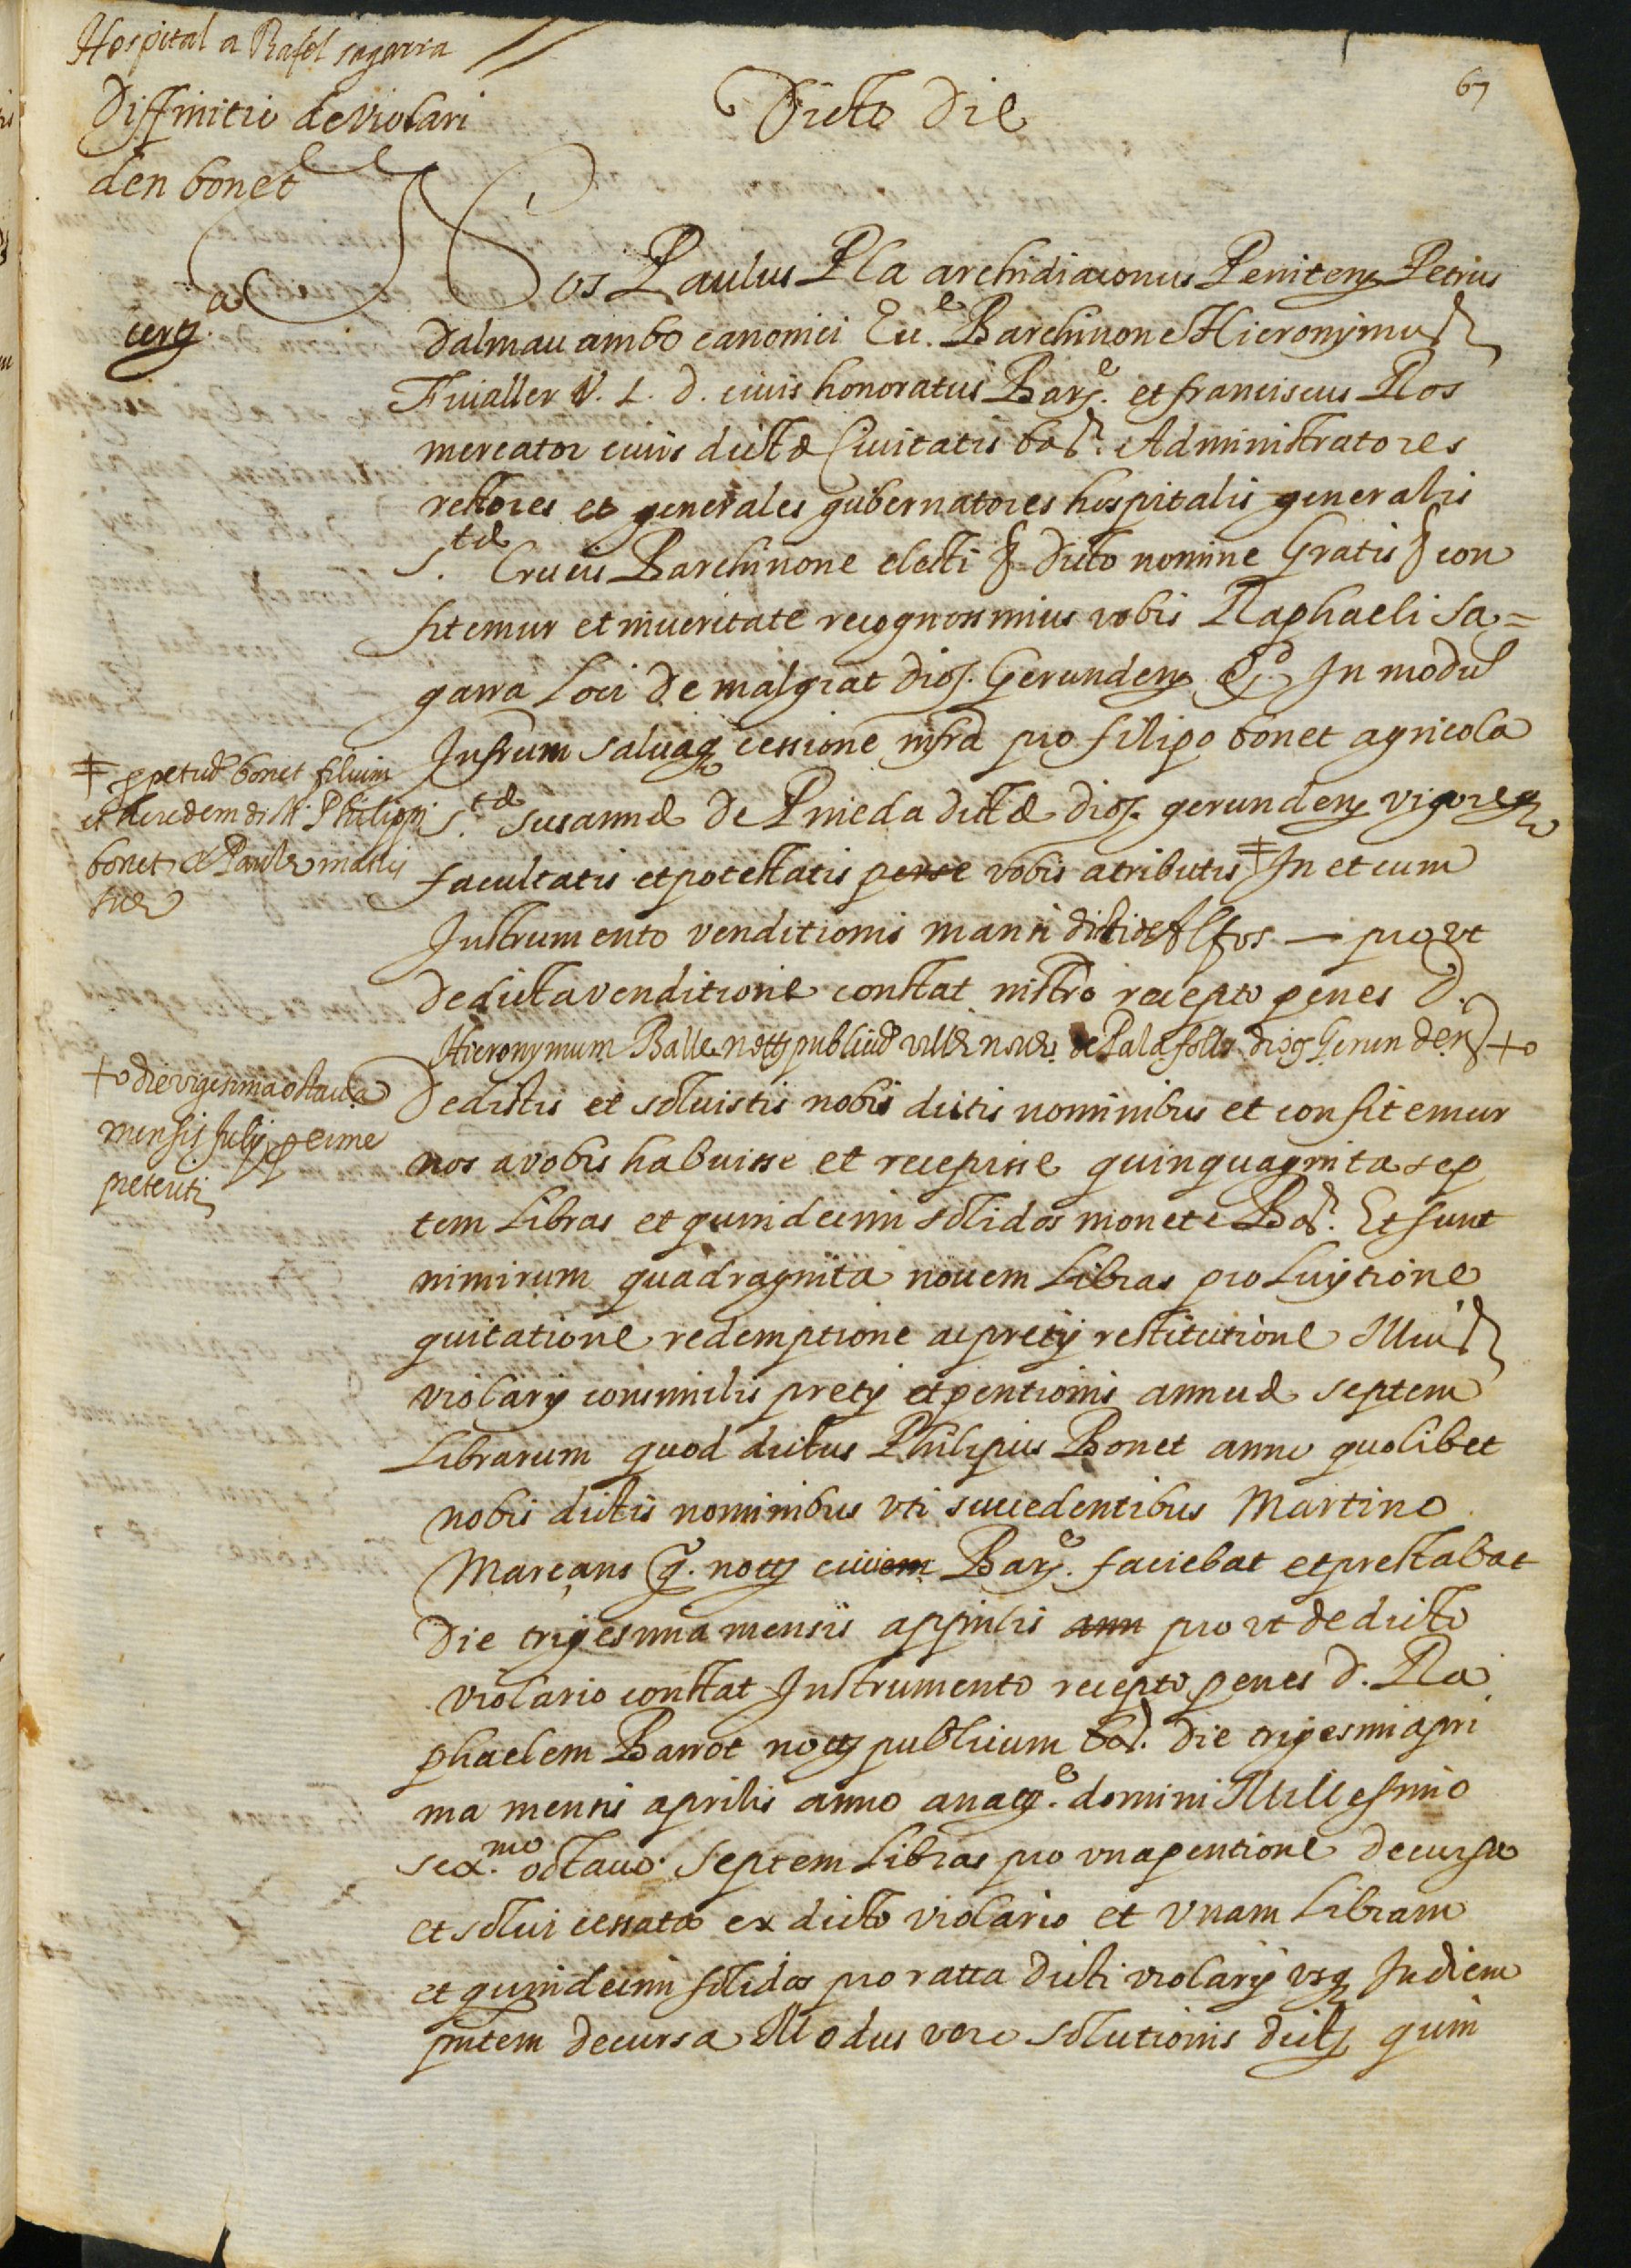 Hospital a Rafel sagarra
67
Diffinitio de violari
den bonet
Dicto Die
certa.
Nos Paulus Pla archidiaconus Peniten. Petrus
Dalmau ambo canonici Ecc.e Barchinone Hieronymus
Fiualler V. L. D. ciuis honoratus Bar.e et franciscus Ros
mercator ciuis dictæ Ciuitatis bar. Administratores
rectores et generales gubernatores hospitalis generalis
S.tæ Crucis Barchinone electi & dicto nomine Gratis & con
fitemur et in ueritate recognossimus vobis Raphaeli Sa=
garra Loci de malgrat dios. Gerunden. In modu
Infrum saluaq cessione infra pro filipo bonet agricola
‡ ppetuũ bonet filium
et heredem dicti Philippi
bonet et Paule matris
sue
S.tæ susannæ de Pineda dictæ dios. gerunden. vigore
facultatis et potestatis perse vobis atributis ‡ In et cum
Instrumento venditionis — pro vt
de dicta venditione constat nistro recepto penes D.
Hieronymum Balle nott publicũ ville noue de Palafolls dios Gerunden +o
+o die vigesima octaua
mensis July pe eime
preteriti
Dedistis et soluistis nobis dictis nominibus et confitemur
nos a vobis habuisse et recepisse quinquaginta sep
tem Libras et quindecim solidos monete Bar. Et sunt
nimirum quadraginta nouem Libras pro Luytione
quitatione redemptione ac prety restitutione Illius
violary consimilis prety et pentionis annuæ septem
Librarum quod dictus Philipus Bonet anno quolibet
nobis dictis nominibus vti succedentibus Martino
Marçans q. nott ciuiem Bar.e faciebat et prestabat
Die trigesima mensis apprilis ann pro vt de dicto
violario constat Instrumento recepto penes d. Ra
phaelem Barrot nott publicum bar. die trigesimapri
ma mensis aprilis anno anat.e domini Millesimo
sex.mo octauo. Septem Libras pro vna pentione decursa
et solui cessata ex dicto violario et vnam Libram
et quindecim solidos pro ratta dicti violary vsq In diem
pntem decursa Modus vero solutionis dict quin